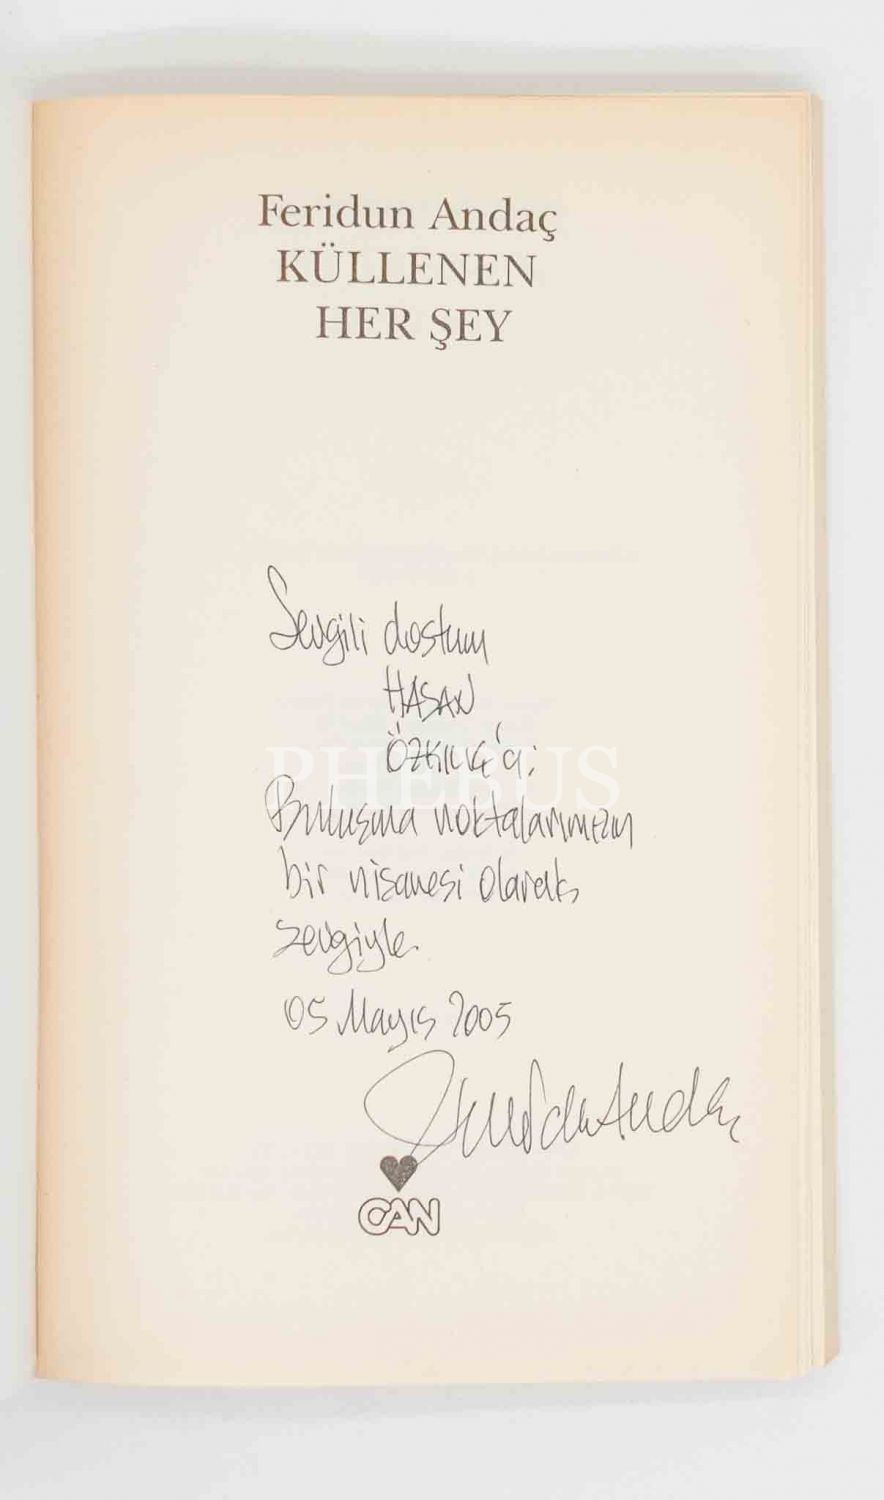 Feridun Andaç
KÜLLENEN
HER ŞEY
Sevgili dostum
HASAN
ÖZKILIÇ'a;
PHEBUS
Buluşma noktalarımızın
bir nişanesi olarak
sevgiyle.
05 Mayıs 2005
Feridun Andaç
CAN